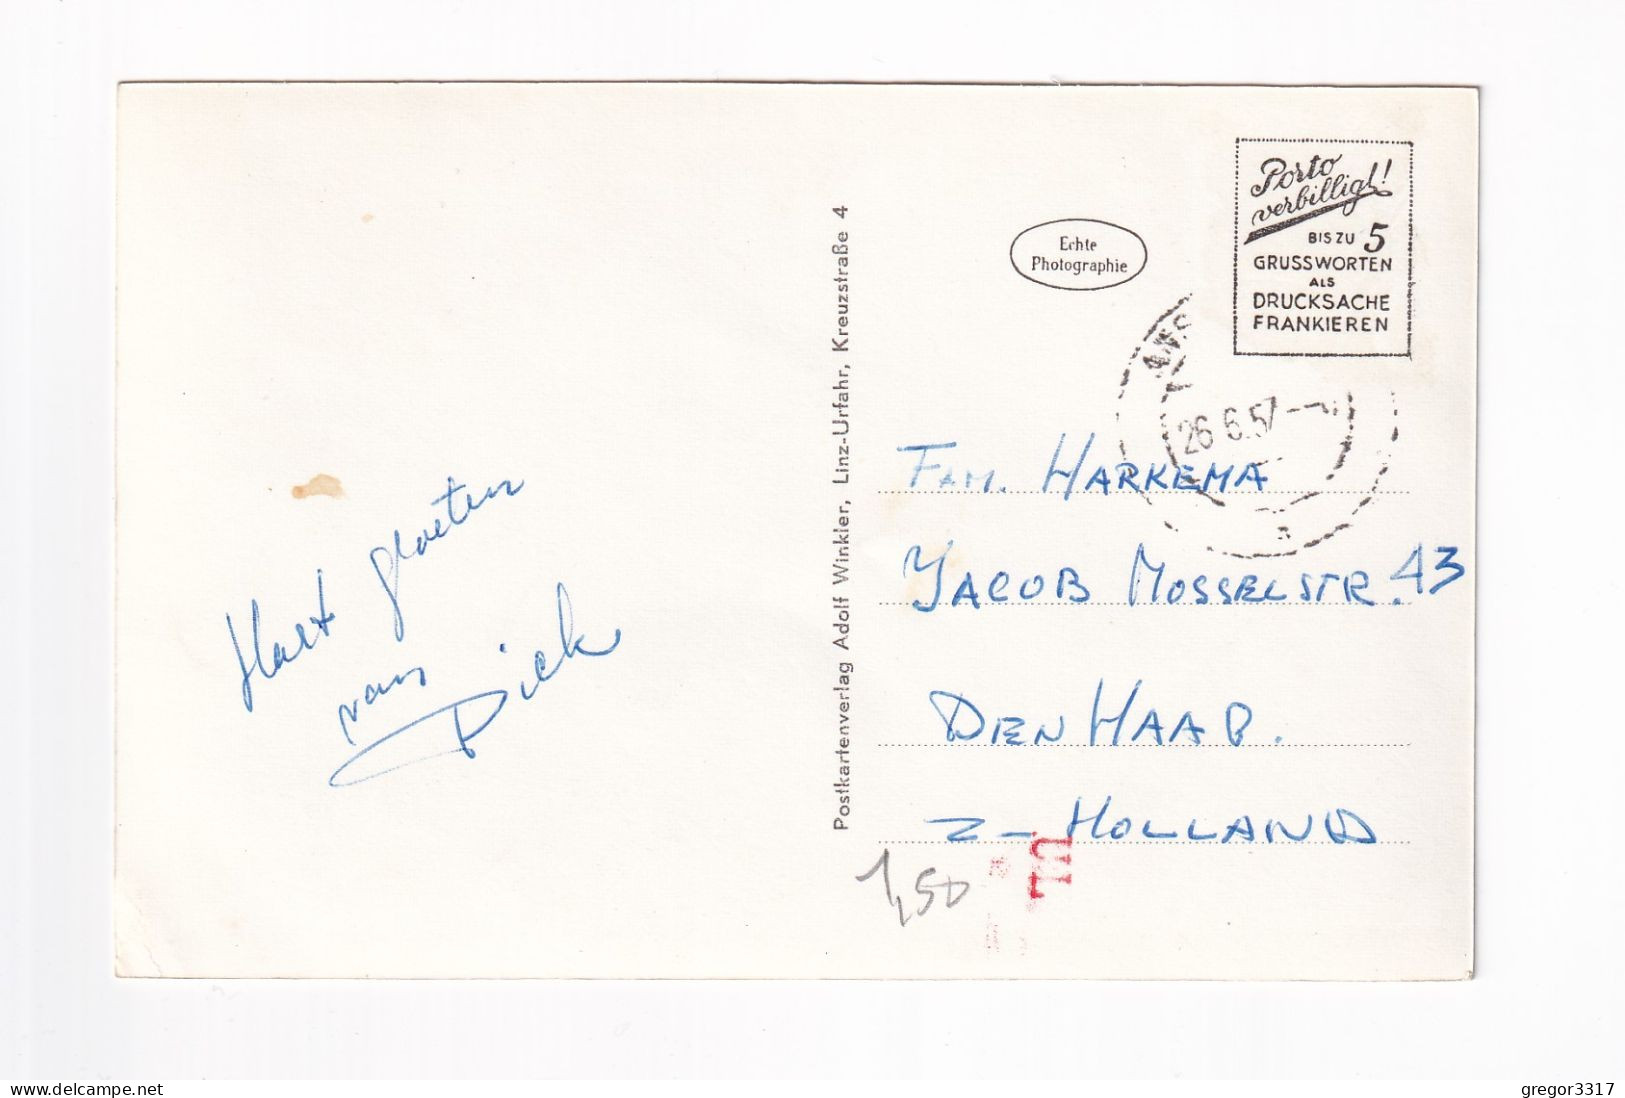 Hart groeten
van
Dick
Postkartenverlag Adolf Winkler, Linz-Urfahr, Kreuzstraße 4
Echte
Photographie
Porto
verbilligt!
BIS ZU 5
GRUSSWORTEN
ALS
DRUCKSACHE
FRANKIEREN
26 6.57
FAM. HARKEMA
JACOB MOSSELSTR. 43
DEN HAAG.
Z-HOLLAND
1,50
delcampe.net
gregor3317